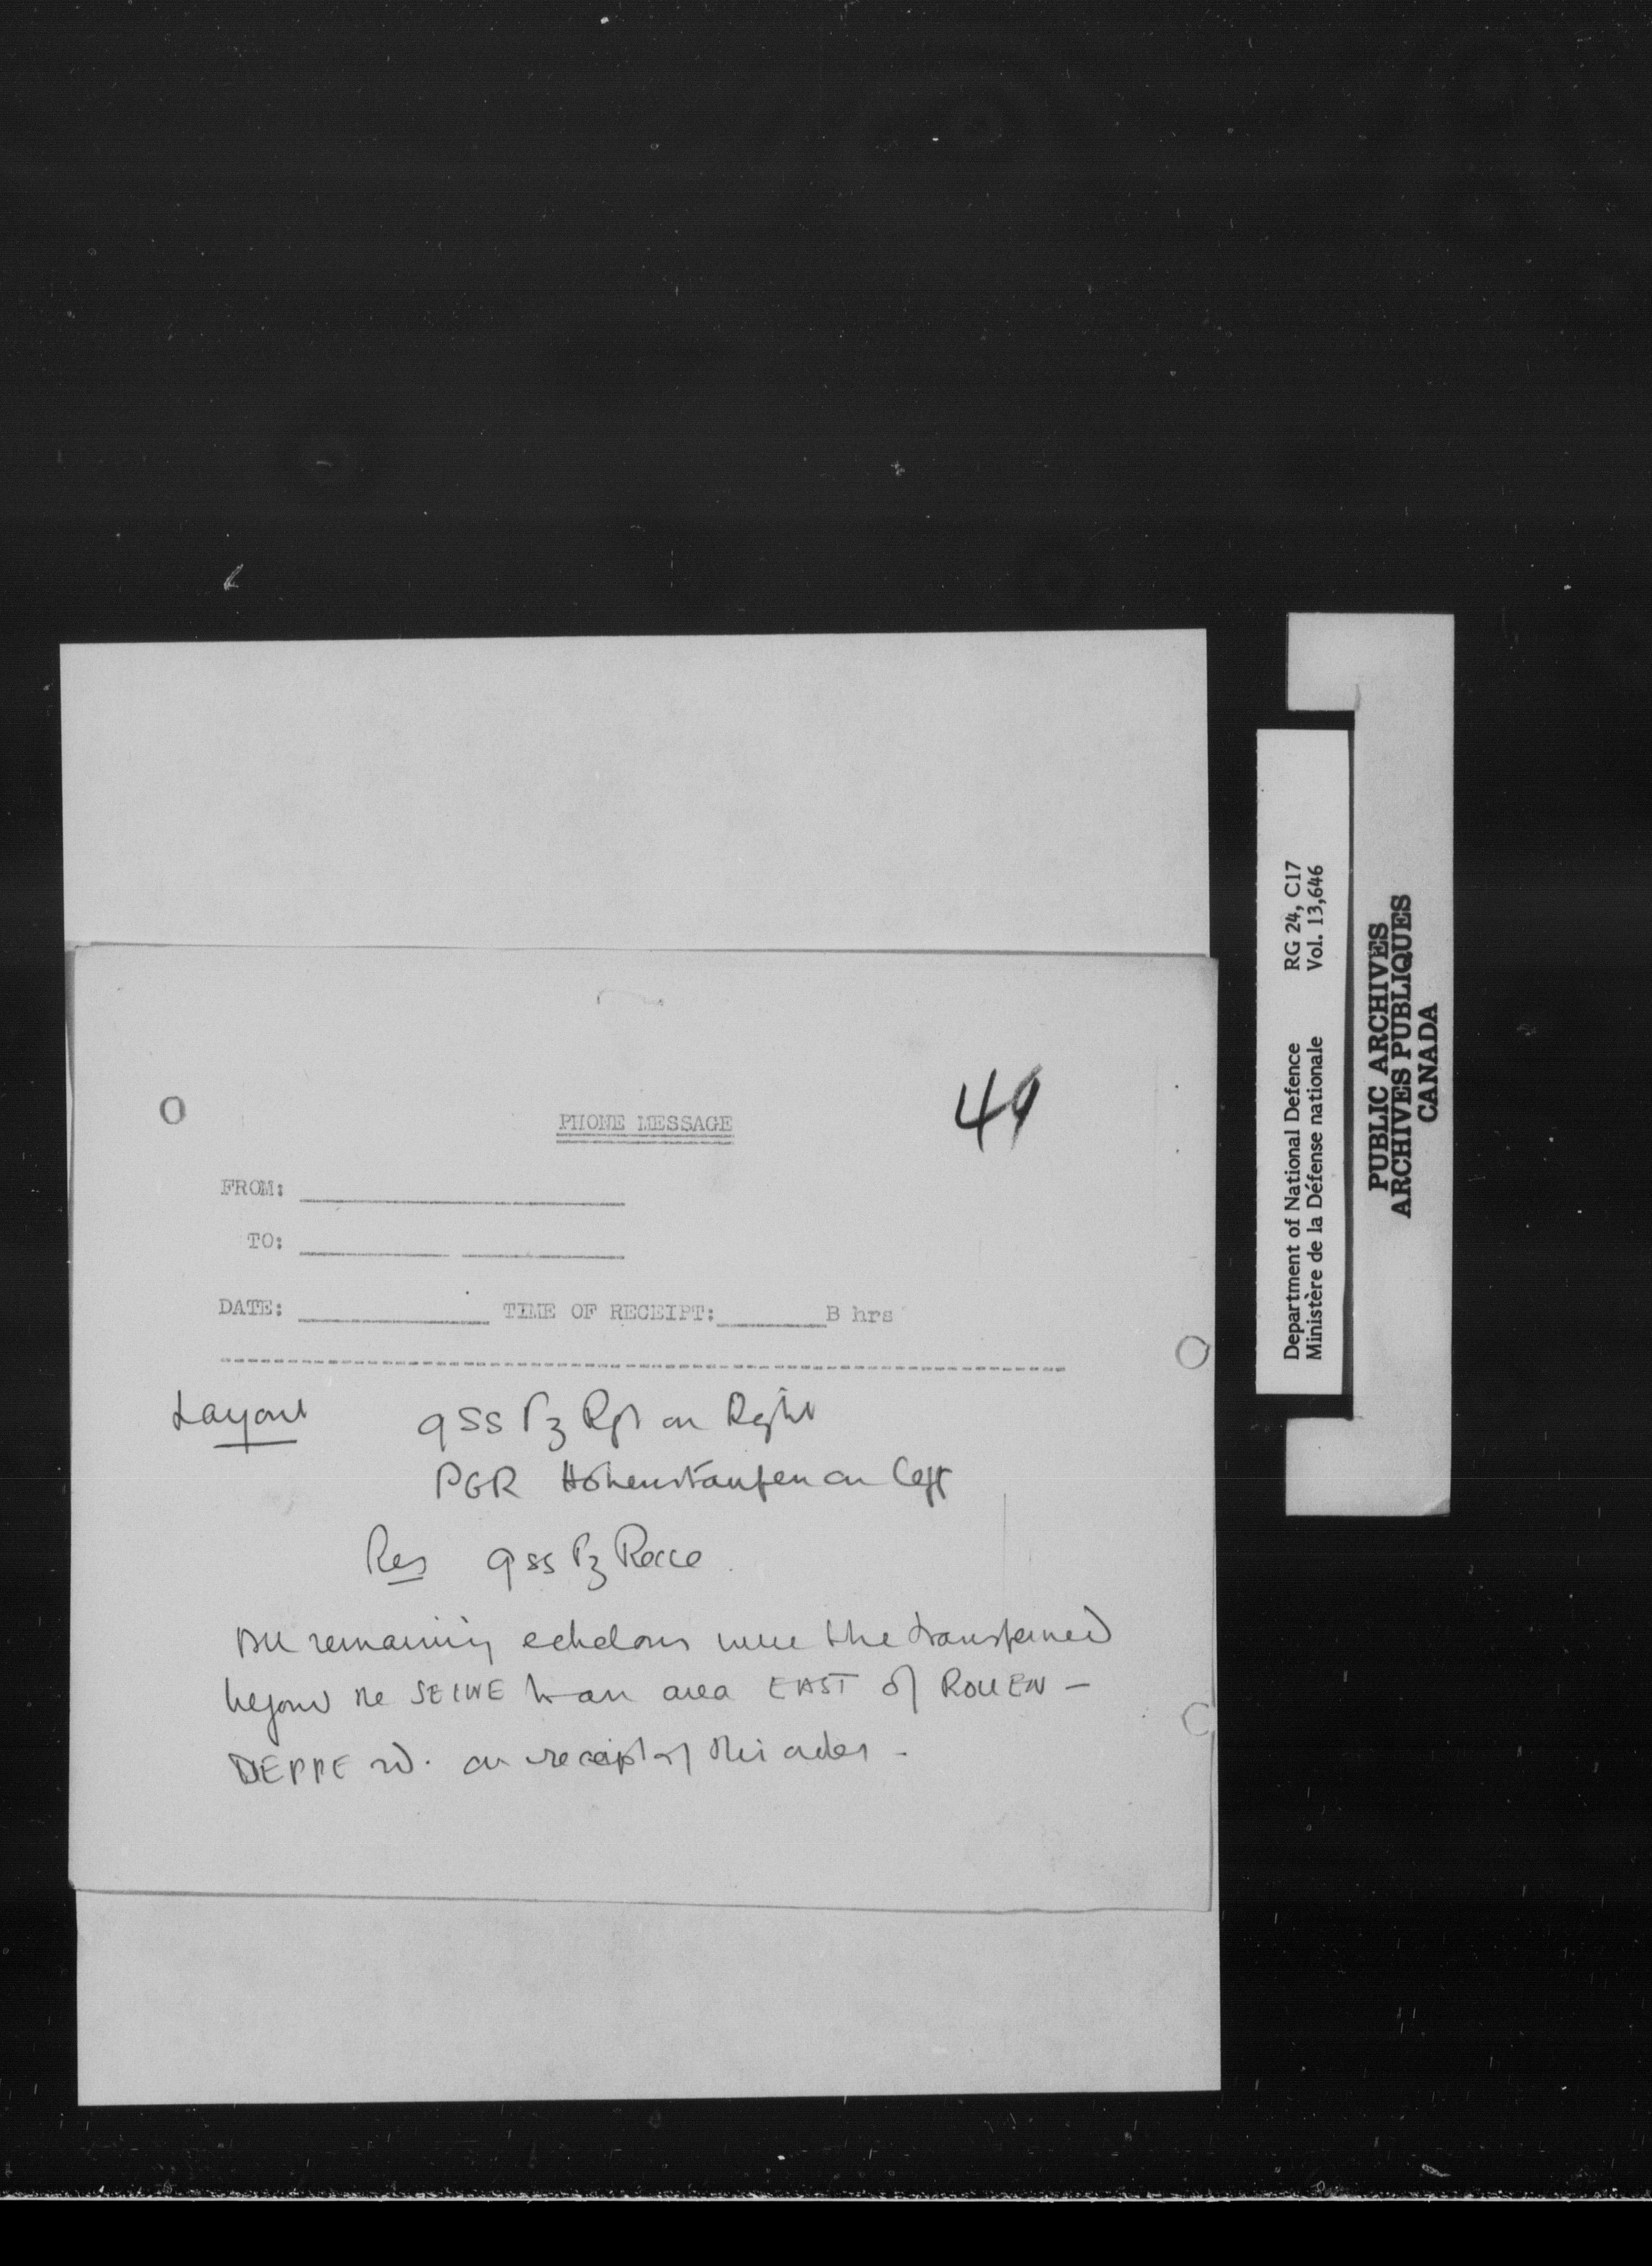 49
PHONE MESSAGE
FROM:
TO:
DATE: TIME OF RECEIPT: B hrs
Layout 9 SS Pz Rgt on Right
PGR Hohenstaufen on left
Res 9 SS Pz Recce.
All remaining echelons were to be transferred
beyond the SEINE to an area EAST of ROUEN –
DIEPPE rd. on receipt of this order –
Department of National Defence RG 24, C17
Ministère de la Défense nationale Vol. 13,646
PUBLIC ARCHIVES
ARCHIVES PUBLIQUES
CANADA